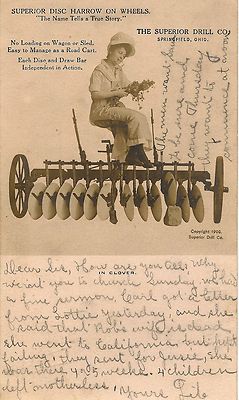 SUPERIOR DISC HARROW ON WHEELS.
"The Name Tells a True Story."
THE SUPERIOR DRILL CO.
SPRINGFIELD, OHIO.
No Loading on Wagon or Sled.
Easy to Manage as a Road Cart.
Each Disc and Draw Bar
Independent in Action.
The men want you
to be sure and
come Thursday
they want to
commence at noon
Copyright 1906,
Superior Drill Co.
IN CLOVER.
Dear Sis, How are you all. Why
went you to church Sunday we had
a fine sermon. Carl got a letter
from Lottie yesterday, and she
said that Rob's wife is dead
she went to California, but kept
failing, they sent for Jessie, she
was there 4 or 5 weeks. 4 children
left motherless. Yours